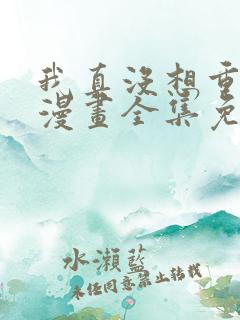 我真没想重
漫畫全集免
水瀨藍
未任同意禁止转载